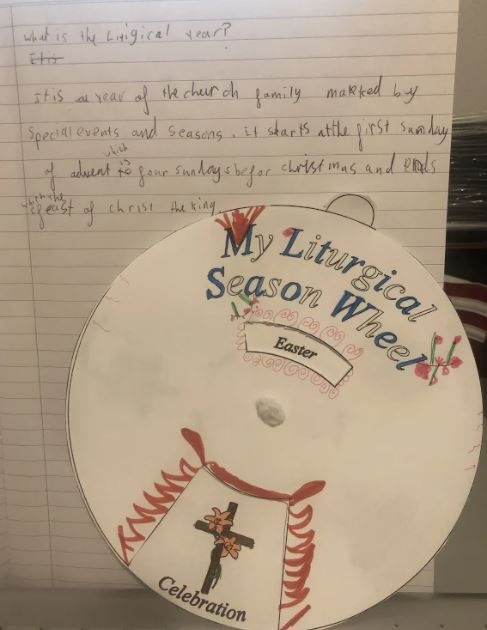 what is the Lirigical year?
It is
It is a year of the church family marked by
special events and seasons. it starts at the first sunday
which
of advent is four sundays befor christmas and ends
with the
feast of christ the king
My Liturgical
Season Wheel
Easter
Celebration